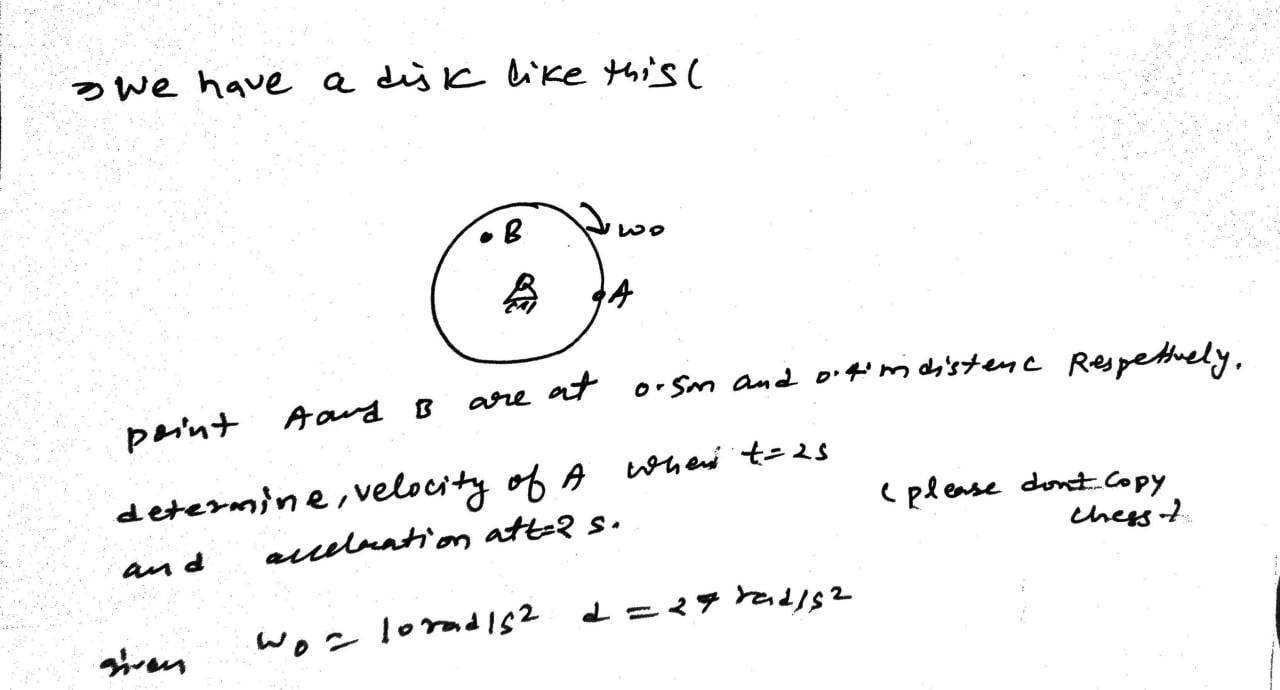 → We have a disk like this (
B
ω0
A
point A and B are at 0.5m and 0.4m distenc Respettvely.
determine, velocity of A when t=2s
and accelaration at t=2 s.
(please dont copy
chegg)
given ω0 = 10 rad/s2 d = rad/s2